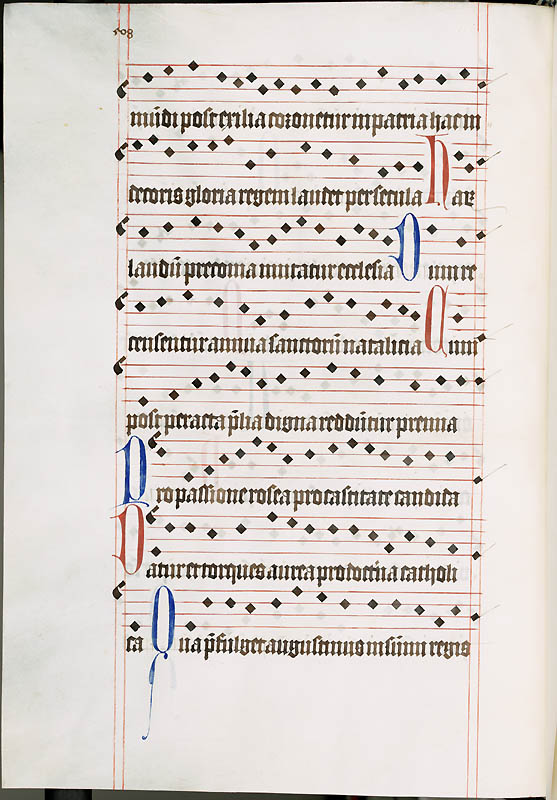 508
mūdi post exilia coronetur in patria hac in
decoris gloria regem laudet per secula Har
landū preconia imitatur ecclesia Dum re
censentur annua sanctorū natalicia Cum
post peracta p̄lia digna reddūtur premia
Pro passione rosea pro castitate candida
Datur et torques aurea pro doctrīa catholi
ca Qua p̄fulget augustinus in sūmi regis